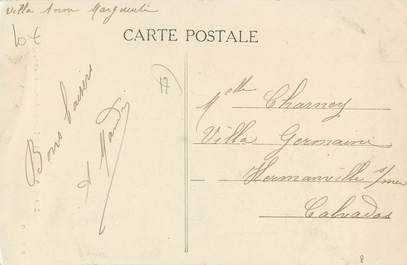 Villa Anna Marguerite
CARTE POSTALE
Bons baisers
Melle Charnoy
Villa Germaine
Hermanville s/mer
Calvados